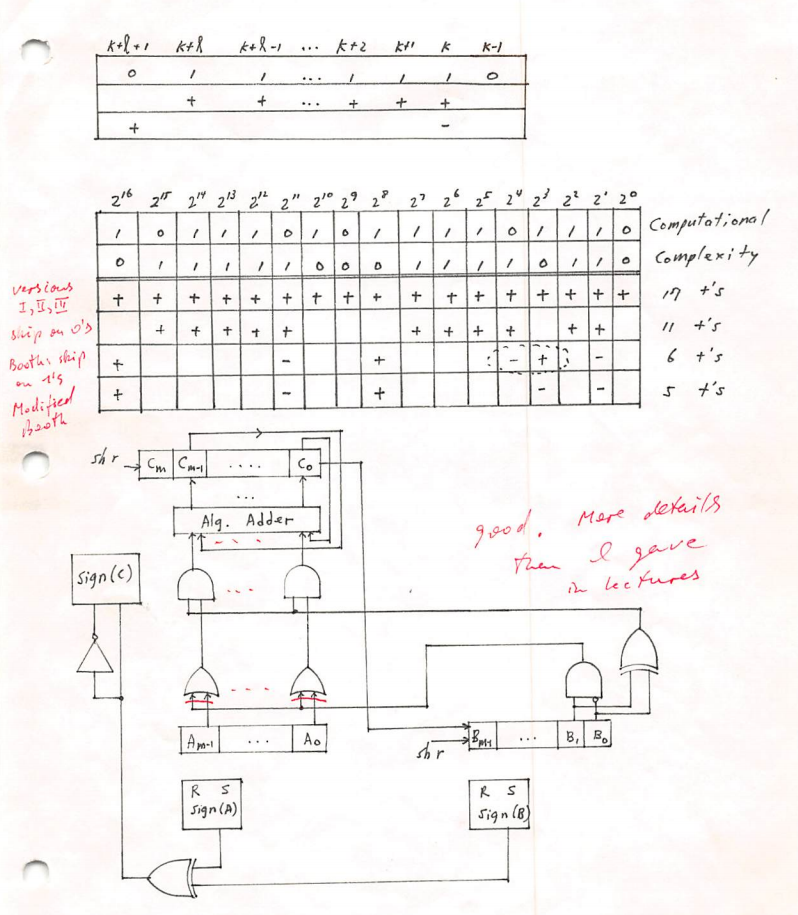 k+l+1 k+l k+l-1 ... k+2 k+1 k k-1
0 1 1 ... 1 1 1 0
+ + ... + + +
+ -
2^16 2^15 2^14 2^13 2^12 2^11 2^10 2^9 2^8 2^7 2^6 2^5 2^4 2^3 2^2 2^1 2^0
1 0 1 1 1 0 1 0 1 1 1 1 0 1 1 1 0 Computational
0 1 1 1 1 1 0 0 0 1 1 1 1 0 1 1 0 Complexity
versions
I, II, III + + + + + + + + + + + + + + + + + 17 +'s
skip on 0's + + + + + + + + + + + 11 +'s
Booth: skip
on 1's + - + - + - 6 +'s
Modified
Booth + - + - - 5 +'s
shr Cm Cm-1 .... C0
...
Alg. Adder
good. More details
then I gave
in lectures
Sign(C)
...
...
Am-1 ... A0
Bm-1 ... B1 B0
shr
R S
Sign(A)
R S
Sign(B)